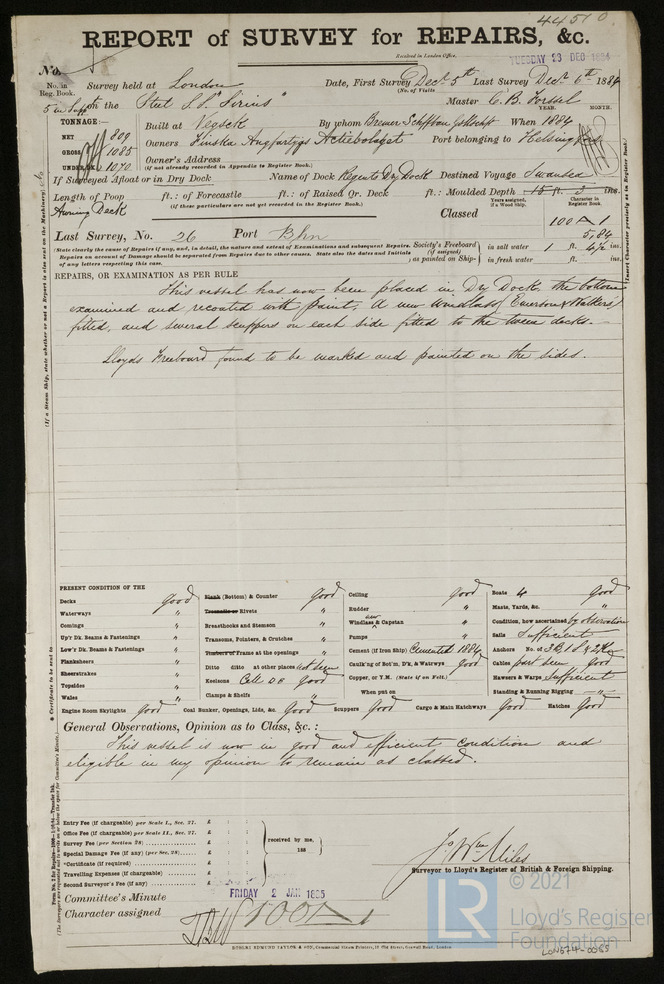 44510.
REPORT of SURVEY for REPAIRS, &c.
Received in London Office,
TUESDAY 23 DEC 1884
No.
No. in Reg. Book.
Survey held at London
Date, First Survey Decr 5th Last Survey Decr 6th 1884
(No. of Visits
5 in Supp on the Steel S.S. "Sirius"
Master C. B. Forssel
YEAR. MONTH.
TONNAGE:—
Built at Vegsck
By whom Bremer Schiffbau
When 1884
NET 809
GROSS 1085
UNDER DK 1070
Owners Finska Angfartygs Actiebolaget
Port belonging to Helsingfors
Owner's Address
(if not already recorded in Appendix to Register Book.)
If Surveyed Afloat or in Dry Dock
Name of Dock Regents Dry Dock
Destined Voyage Swansea
Length of Poop ft.: of Forecastle ft.: of Raised Qr. Deck ft.: Moulded Depth 15 ft. 3 ins.
(if these particulars are not yet recorded in the Register Book.)
Awning Deck
Years assigned, if a Wood Ship.
Character in Register Book.
Classed
100 A 1
5,84
Last Survey, No. 26 Port Bhn
(State clearly the cause of Repairs if any, and, in detail, the nature and extent of Examinations and subsequent Repairs. Repairs on account of Damage should be separated from Repairs due to other causes. State also the dates and Initials of any letters respecting this case.
Society's Freeboard (if assigned) as painted on Ship-
in salt water 1 ft. 4½ ins.
in fresh water ft. ins.
REPAIRS, OR EXAMINATION AS PER RULE
This vessel has now been placed in Dry Dock the bottom
examined and recoated with paint. A new windlass (Emerson & Walkers)
fitted, and several scuppers on each side fitted to the tween decks.—
Lloyds Freeboard found to be marked and painted on the sides.
PRESENT CONDITION OF THE
Decks Good
Waterways "
Comings "
Up'r Dk. Beams & Fastenings "
Low'r Dk. Beams & Fastenings "
Planksheers "
Sheerstrakes "
Topsides "
Wales "
Engine Room Skylights Good
Blank (Bottom) & Counter Good
Treenails or Rivets "
Breasthooks and Stemson "
Transoms, Pointers, & Crutches "
Timbers or Frame at the openings "
Ditto ditto at other places Not seen
Keelsons Cell DB Good
Clamps & Shelfs "
Coal Bunker, Openings, Lids, &c. Good
Ceiling Good
Rudder "
new
Windlass & Capstan "
Pumps "
Cement (if Iron Ship) Cemented 1884
Caulk'ng of Bot'm, D'k, & Watrwys Good
Copper, or Y.M. (State if on Felt.)
When put on
Scuppers Good Cargo & Main Hatchways Good Hatches Good
Boats 4 Good
Masts, Yards, &c. "
Condition, how ascertained by observation
Sails Sufficient
Anchors No. of 3B 1S & 2K
Cables part seen Good
Hawsers & Warps Sufficient
Standing & Running Rigging —"—
General Observations, Opinion as to Class, &c.:
This vessel is now in good and efficient condition and
eligible in my opinion to remain as classed.
Entry Fee (if chargeable) per Scale I., Sec. 27. £
Office Fee (if chargeable) per Scale II., Sec. 27. £
Survey Fee (per Section 28) £
Special Damage Fee (if any) (per Sec. 28) £
*Certificate (if required) £
Travelling Expenses (if chargeable) £
Second Surveyor's Fee (if any) £
received by me,
188
Jo Wm Miles
Surveyor to Lloyd's Register of British & Foreign Shipping.
FRIDAY 2 JAN 1885
Committee's Minute
Character assigned
100A1
© 2021
LR
Lloyd's Register
Foundation
LON674-0065